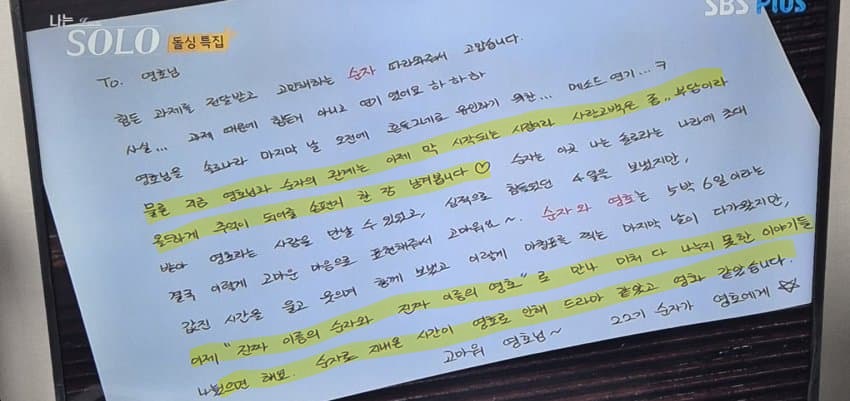 나는 Solo
SOLO 돌싱 특집
SBS PLUS
To. 영호님
힘든 과제를 전달받고 고민하는 순자 따라와줘서 고맙습니다.
사실... 과제 때문에 힘든거 아니고 연기 였어요 하 하 하
영호님을 솔로나라 마지막 날 오전에 흔들그네로 유인하기 위한... 메소드 연기...ㅋ
물론 지금 영호님과 순자의 관계는 이제 막 시작되는 시점이라 사랑고백은 좀,, 부담이라
올드하게 추억이 되어줄 손편지 한 장 남겨봅니다♡ 순자는 이곳 나는 솔로라는 나라에 초대
받아 영호라는 사람을 만날 수 있었고, 심적으로 힘들었던 4일을 보냈지만,
결국 이렇게 고마운 마음으로 표현해줘서 고마워요~. 순자와 영호는 5박 6일이라는
값진 시간을 울고 웃으며 함께 보냈고 이렇게 마침표를 찍는 마지막 날이 다가왔지만,
이제 "진짜 이름의 순자와 진짜 이름의 영호"로 만나 미처 다 나누지 못한 이야기들
나눴으면 해요. 순자로 지내온 시간이 영호로 인해 드라마 같았고 영화 같았습니다.
고마워 영호님~ 22기 순자가 영호에게